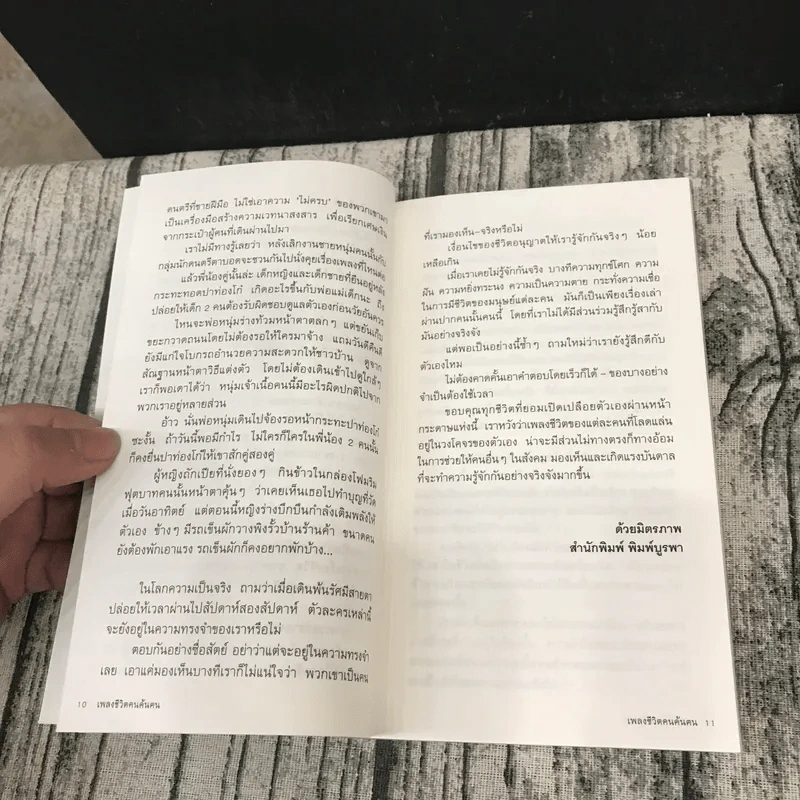 ดนตรีที่ขายฝีมือ ไม่ใช่เอาความ "ไม่ครบ" ของพวกเขามา
เป็นเครื่องมือสร้างความเวทนาสงสาร เพื่อเรียกเศษเงิน
จากกระเป๋าผู้คนที่เดินผ่านไปมา
เราไม่มีทางรู้เลยว่า หลังเลิกงานชายหนุ่มคนนั้นกับ
กลุ่มนักดนตรีตาบอดจะชวนกันไปนั่งคุยเรื่องเพลงที่ไหนต่อ
แล้วพี่น้องคู่นั้นล่ะ เด็กหญิงและเด็กชายที่ยืนอยู่หลัง
กระทะทอดปาท่องโก๋ เกิดอะไรขึ้นกับพ่อแม่เด็กนะ ถึง
ปล่อยให้เด็ก 2 คนต้องรับผิดชอบดูแลตัวเองก่อนวัยอันควร
ไหนจะพ่อหนุ่มร่างท้วมหน้าตาตลกๆ แต่ขยันเก็บ
ขยะกวาดถนนโดยไม่ต้องรอให้ใครมาจ้าง แถมวันดีคืนดี
ยังมีแก่ใจโบกรถอำนวยความสะดวกให้ชาวบ้าน ดูจาก
สัณฐานหน้าตาวิธีแต่งตัว โดยไม่ต้องเดินเข้าไปดูใกล้ๆ
เราก็พอเดาได้ว่า หนุ่มเจ้าเนื้อคนนี้มีอะไรผิดปกติไปจาก
พวกเราอยู่หลายส่วน
อ้าว นั่นพ่อหนุ่มเดินไปจ้องรอหน้ากระทะปาท่องโก๋
ซะงั้น ถ้าวันนี้พอมีกำไร ไม่ใครก็ใครในพี่น้อง 2 คนนั้น
ก็คงยื่นปาท่องโก๋ให้เขาสักคู่สองคู่
ผู้หญิงถักเปียที่นั่งยองๆ กินข้าวในกล่องโฟมริม
ฟุตบาทคนนั้นหน้าตาคุ้นๆ ว่าเคยเห็นเธอไปทำบุญที่วัด
เมื่อวันอาทิตย์ แต่ตอนนี้หญิงร่างบึกบึนกำลังเติมพลังให้
ตัวเอง ข้างๆ มีรถเข็นผักวางพิงรั้วบ้านร้านค้า ขนาดคน
ยังต้องพักเอาแรง รถเข็นผักก็คงอยากพักบ้าง...
ในโลกความเป็นจริง ถามว่าเมื่อเดินพ้นรัศมีสายตา
ปล่อยให้เวลาผ่านไปสัปดาห์สองสัปดาห์ ตัวละครเหล่านี้
จะยังอยู่ในความทรงจำของเราหรือไม่
ตอบกันอย่างซื่อสัตย์ อย่าว่าแต่จะอยู่ในความทรงจำ
เลย เอาแค่มองเห็นบางทีเราก็ไม่แน่ใจว่า พวกเขาเป็นคน
10 เพลงชีวิตคนค้นคน
ที่เรามองเห็น–จริงหรือไม่
เงื่อนไขของชีวิตอนุญาตให้เรารู้จักกันจริงๆ น้อย
เหลือเกิน
เมื่อเราเคยไม่รู้จักกันจริง บางทีความทุกข์โศก ความ
ฝัน ความหยิ่งทระนง ความเป็นความตาย กระทั่งความเชื่อ
ในการมีชีวิตของมนุษย์แต่ละคน มันก็เป็นเพียงเรื่องเล่า
ผ่านปากคนนั้นคนนี้ โดยที่เราไม่ได้มีส่วนร่วมรู้สึกรู้สากับ
มันอย่างจริงจัง
แต่พอเป็นอย่างนี้ซ้ำๆ ถามใหม่ว่าเรายังรู้สึกดีกับ
ตัวเองไหม
ไม่ต้องคาดคั้นเอาคำตอบโดยเร็วก็ได้ – ของบางอย่าง
จำเป็นต้องใช้เวลา
ขอบคุณทุกชีวิตที่ยอมเปิดเปลือยตัวเองผ่านหน้า
กระดาษแห่งนี้ เราหวังว่าเพลงชีวิตของแต่ละคนที่โลดแล่น
อยู่ในวงโคจรของตัวเอง น่าจะมีส่วนไม่ทางตรงก็ทางอ้อม
ในการช่วยให้คนอื่นๆ ในสังคม มองเห็นและเกิดแรงบันดาล
ที่จะทำความรู้จักกันอย่างจริงจังมากขึ้น
ด้วยมิตรภาพ
สำนักพิมพ์ พิมพ์บูรพา
เพลงชีวิตคนค้นคน 11